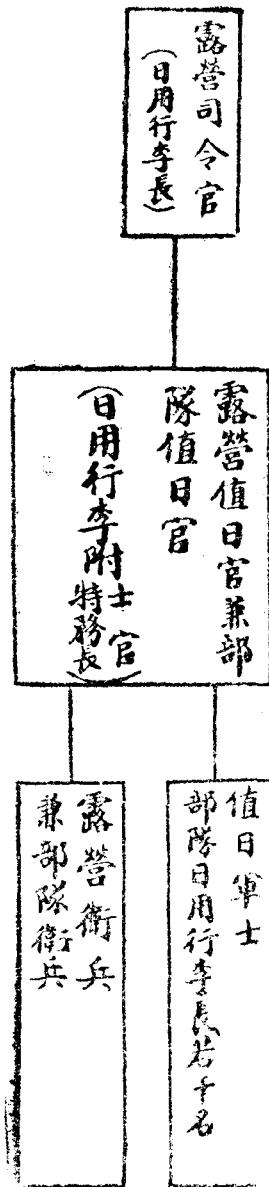 露營司令官
(日用行李長)
露營值日官兼部
隊值日官
(日用行李附士官
特務長)
值日軍士
部隊日用行李長若干名
露營衛兵
兼部隊衛兵